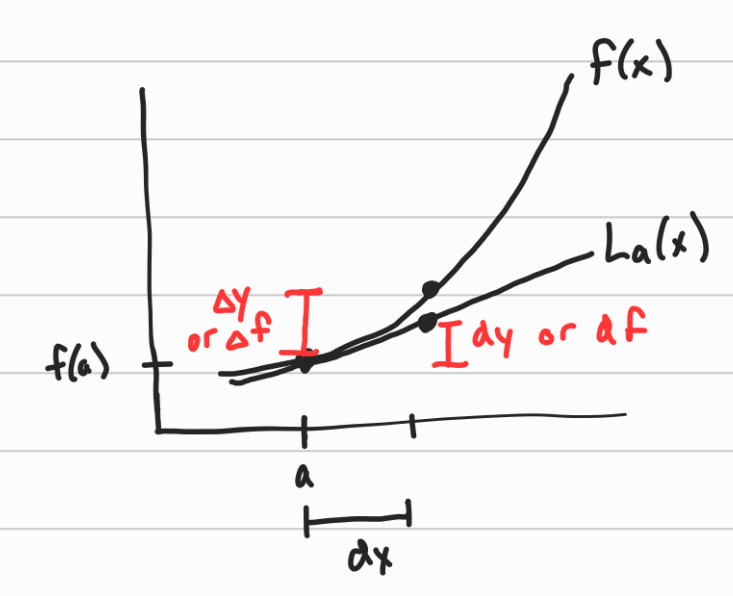 f(x)
La(x)
Δy
or Δf
dy or df
f(a)
a
dx